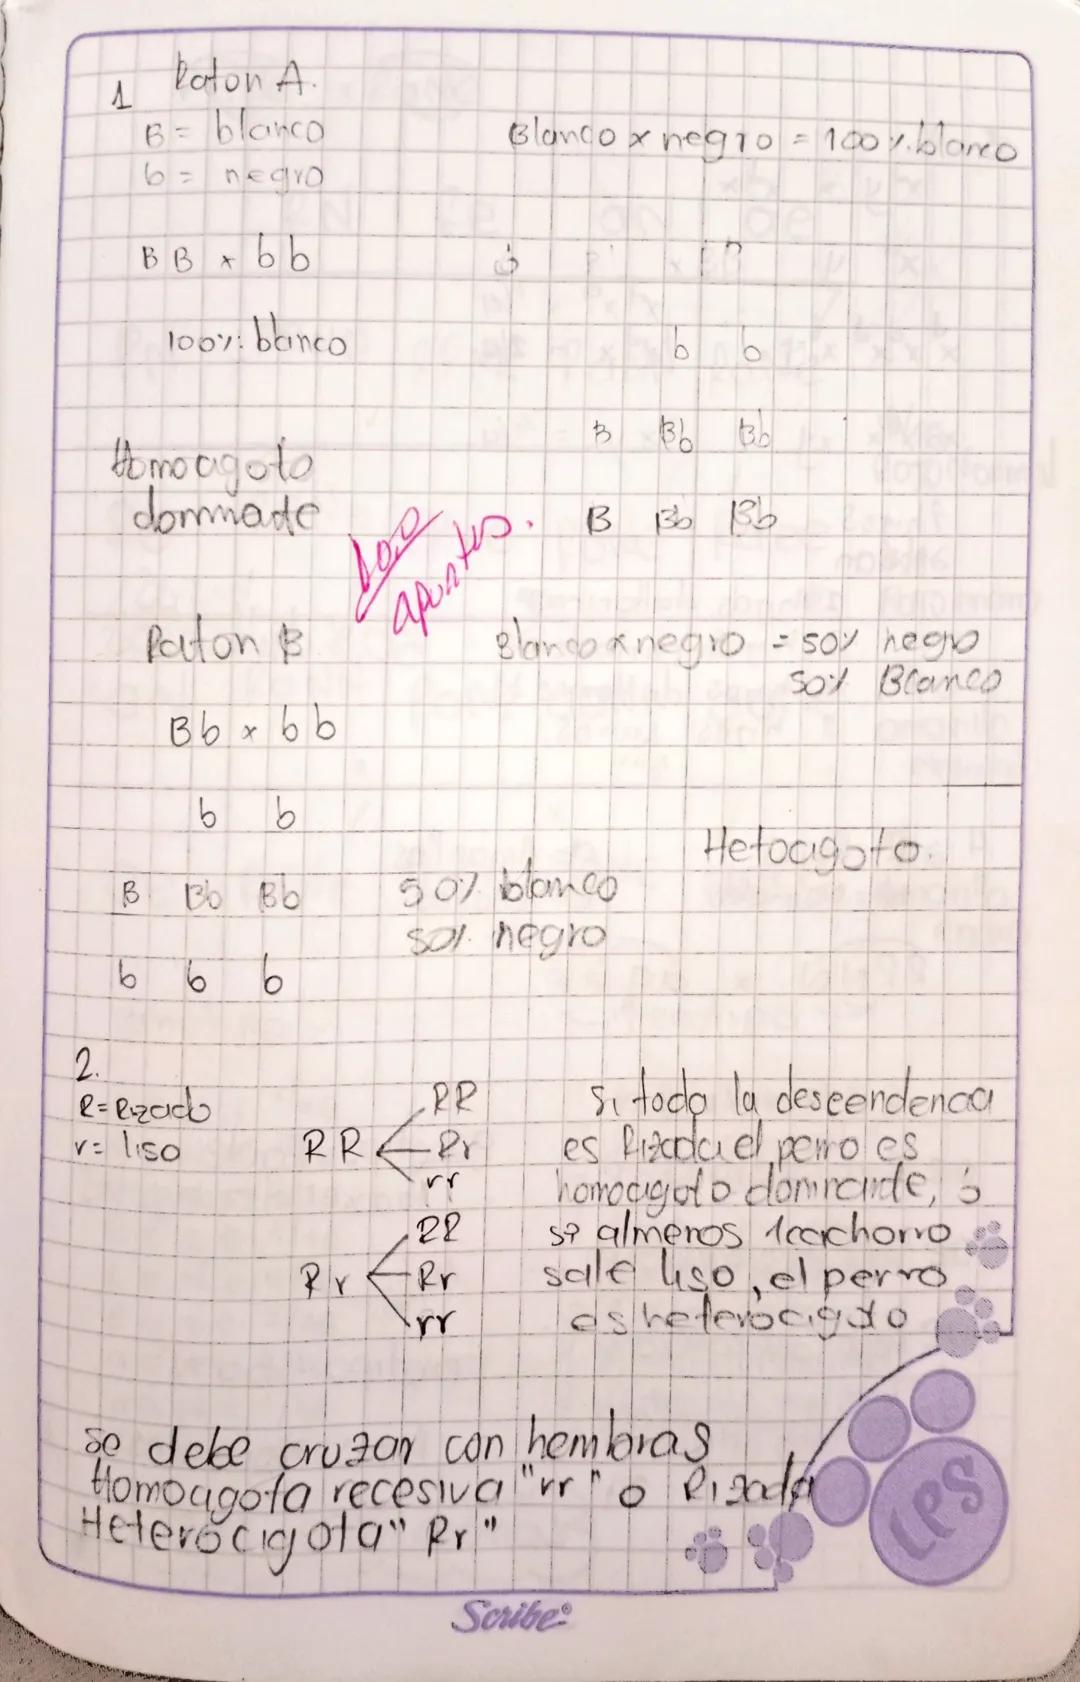 1 Raton A.
B = blanco
b = negro
Blanco x negro = 100%. blanco
BB x bb
100%: blanco
b b
B Bb Bb
B Bb Bb
Homocigoto
dominate
10.0
apuntes.
Raton B
Blanco x negro = 50% negro
50% Blanco
Bb x bb
b b
Hetocigoto.
B Bb Bb
b b b
50% blanco
50%. negro
2.
R = Rizado
r = liso
RR
RR
Rr
rr
Rr
RR
Rr
rr
Si toda la descendencia
es Rizada el perro es
homocigoto dominante, ó
si almenos 1 cachorro
sale liso, el perro
es heterocigoto
se debe cruzar con hembras
Homocigota recesiva "rr" o Rizada
Heterocigota "Rr"
LPS
Scribe®